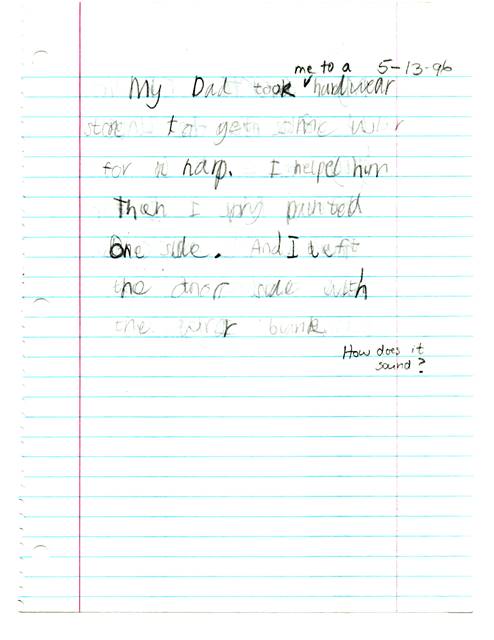 me to a 5-13-96
My Dad took hardwear
store to get some
for a harp. I helped him
Then I spray painted
One side. And I left
the other side with
the
How does it
sound?